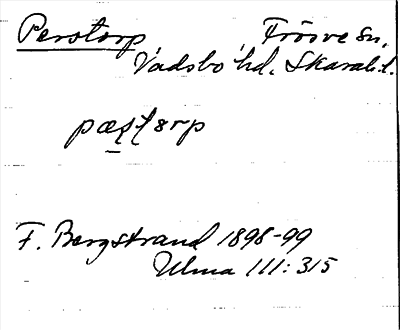 Perstorp Frösve sn.
Vadsbo hd. Skarab. l.
pæʂʈərp
F. Bergstrand 1898-99
Ulma 111:315